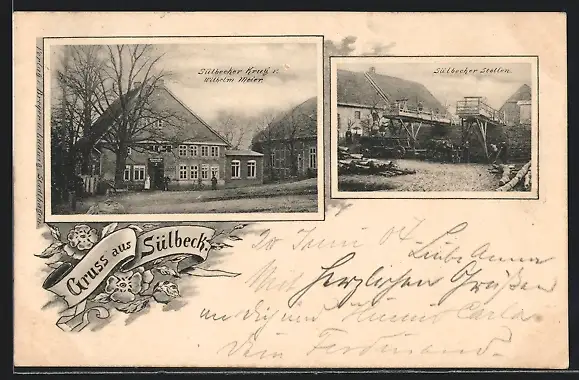 Sülbecher Krug v.
Wilhelm Meier.
Sülbecher Stollen.
Gruss aus Sülbeck.
20 Juni 04.
Liebe Anna
Mit herzlichen Grüßen
an Dich und
Dein Ferdinand.